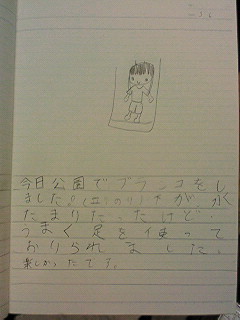 今日公園でブランコをし
ました。 下が、水
たまりだったけど、
うまく足を使って
おりられました。
楽しかったです。